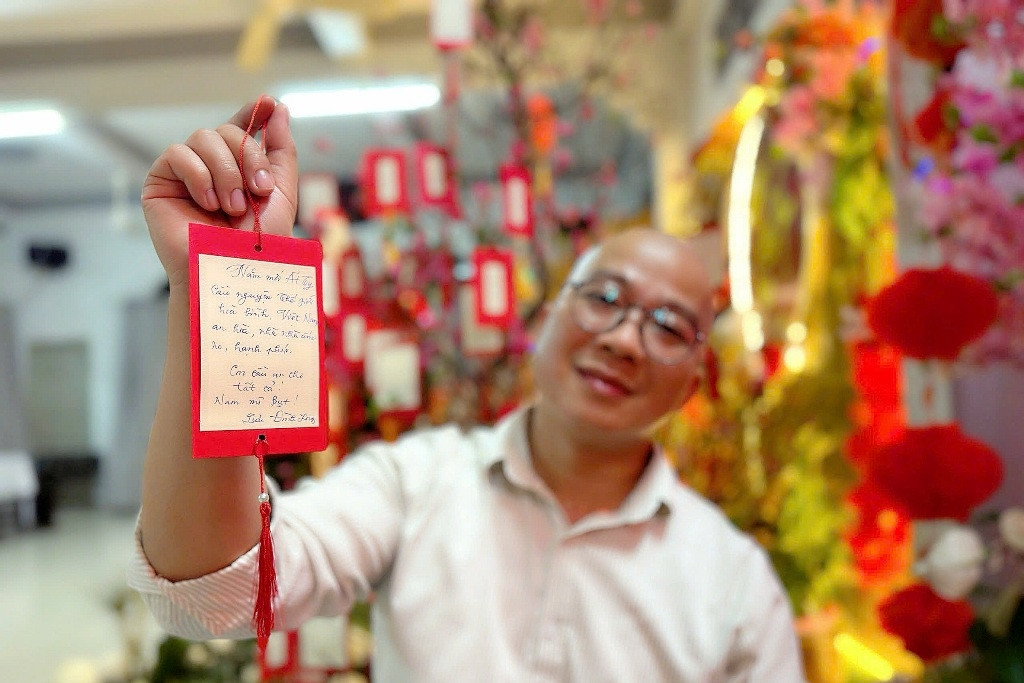 Năm mới Ất Tỵ
Cầu nguyện thế giới
hòa bình, Việt Nam
an hòa, nhà nhà ấm
no, hạnh phúc.
Cầu an cho
tất cả!
Nam mô Bụt!